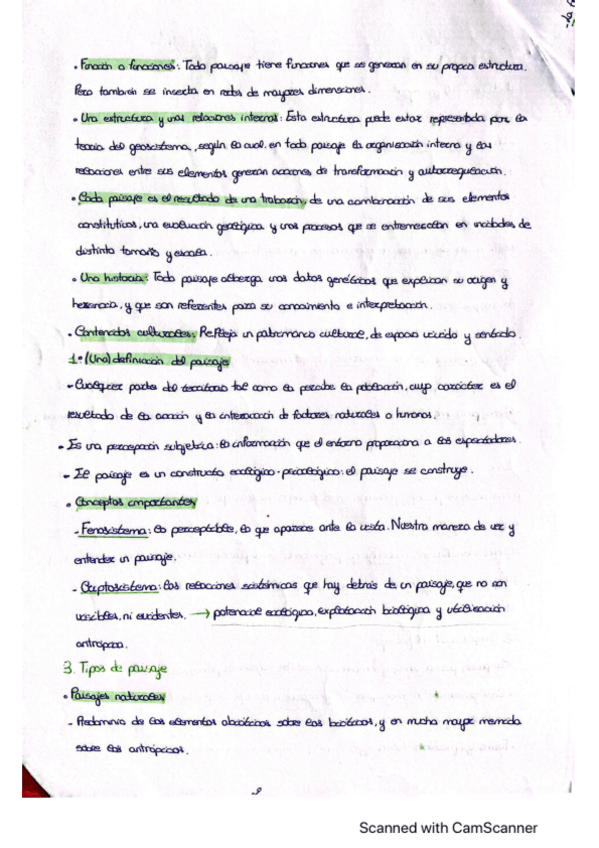 • Función o funciones: Todo paisaje tiene funciones que se generan en su propia estructura.
Pero también se inserta en redes de mayores dimensiones.
• Una estructura y unas relaciones internas: Esta estructura puede estar representada por la
teoría del geosistema, según la cual en todo paisaje la organización interna y las
relaciones entre sus elementos generan acciones de transformación y autorregulación.
• Cada paisaje es el resultado de una trabazón, de una combinación de sus elementos
constitutivos, una evolución genética y unos procesos que se entremezclan en unidades de
distinto tamaño y escala.
• Una historia: Todo paisaje alberga unos datos genéticos que explican su origen y
herencia, y que son referentes para su conocimiento e interpretación.
• Contenidos culturales: Refleja un patrimonio cultural, de espacio vivido y sentido.
(Una) definición del paisaje
- Cualquier parte del territorio tal como la percibe la población, cuyo carácter es el
resultado de la acción y la interacción de factores naturales o humanos.
• Es una percepción subjetiva: la información que el entorno proporciona a los espectadores.
• El paisaje es un constructo ecológico-psicológico: el paisaje se construye.
• Conceptos importantes
- Fenosistema: lo perceptible, lo que aparece ante la vista. Nuestra manera de ver y
entender un paisaje.
- Criptosistema: las relaciones sistémicas que hay detrás de un paisaje, que no son
visibles, ni evidentes. → potencial ecológico, explotación biológica y utilización
antrópica.
3. Tipos de paisaje
• Paisajes naturales
- Predominio de los elementos abióticos sobre los bióticos, y en mucha mayor medida
sobre los antrópicos.
Scanned with CamScanner